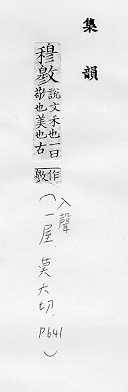 集韻
穆
說文禾也一曰
敬也美也古
作
(入聲
一屋 莫六切 P641)